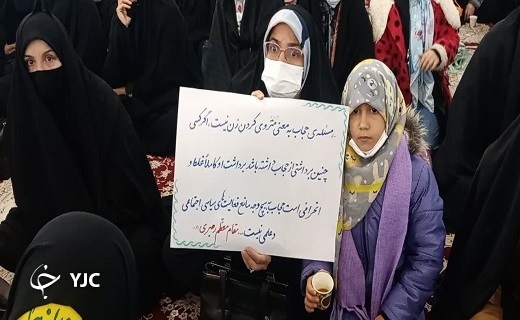 ..مسئله‌ی حجاب به معنی منزوی کردن زن نیست. اگر کسی
چنین برداشتی از حجاب داشته باشد برداشت او کاملاً غلط و
انحرافی است حجاب به هیچ وجه مانع فعالیت‌های سیاسی اجتماعی
و علمی نیست... مقام معظم رهبری..
YJC